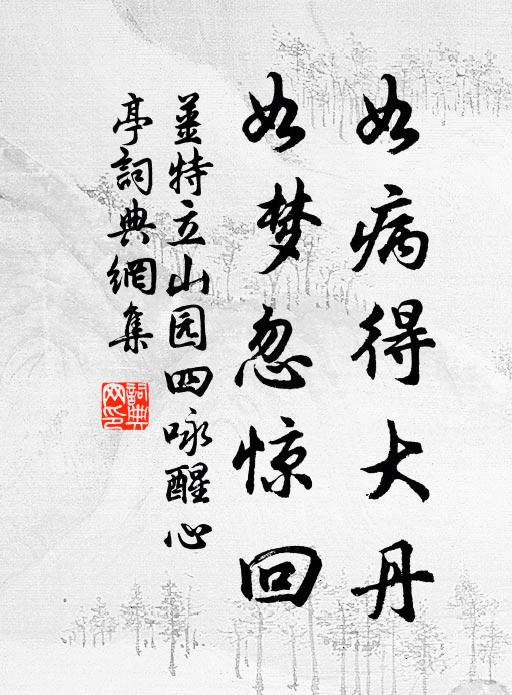 如病得大丹
如梦忽惊回
姜特立山园四咏醒心
亭詞典網集
詞典网印